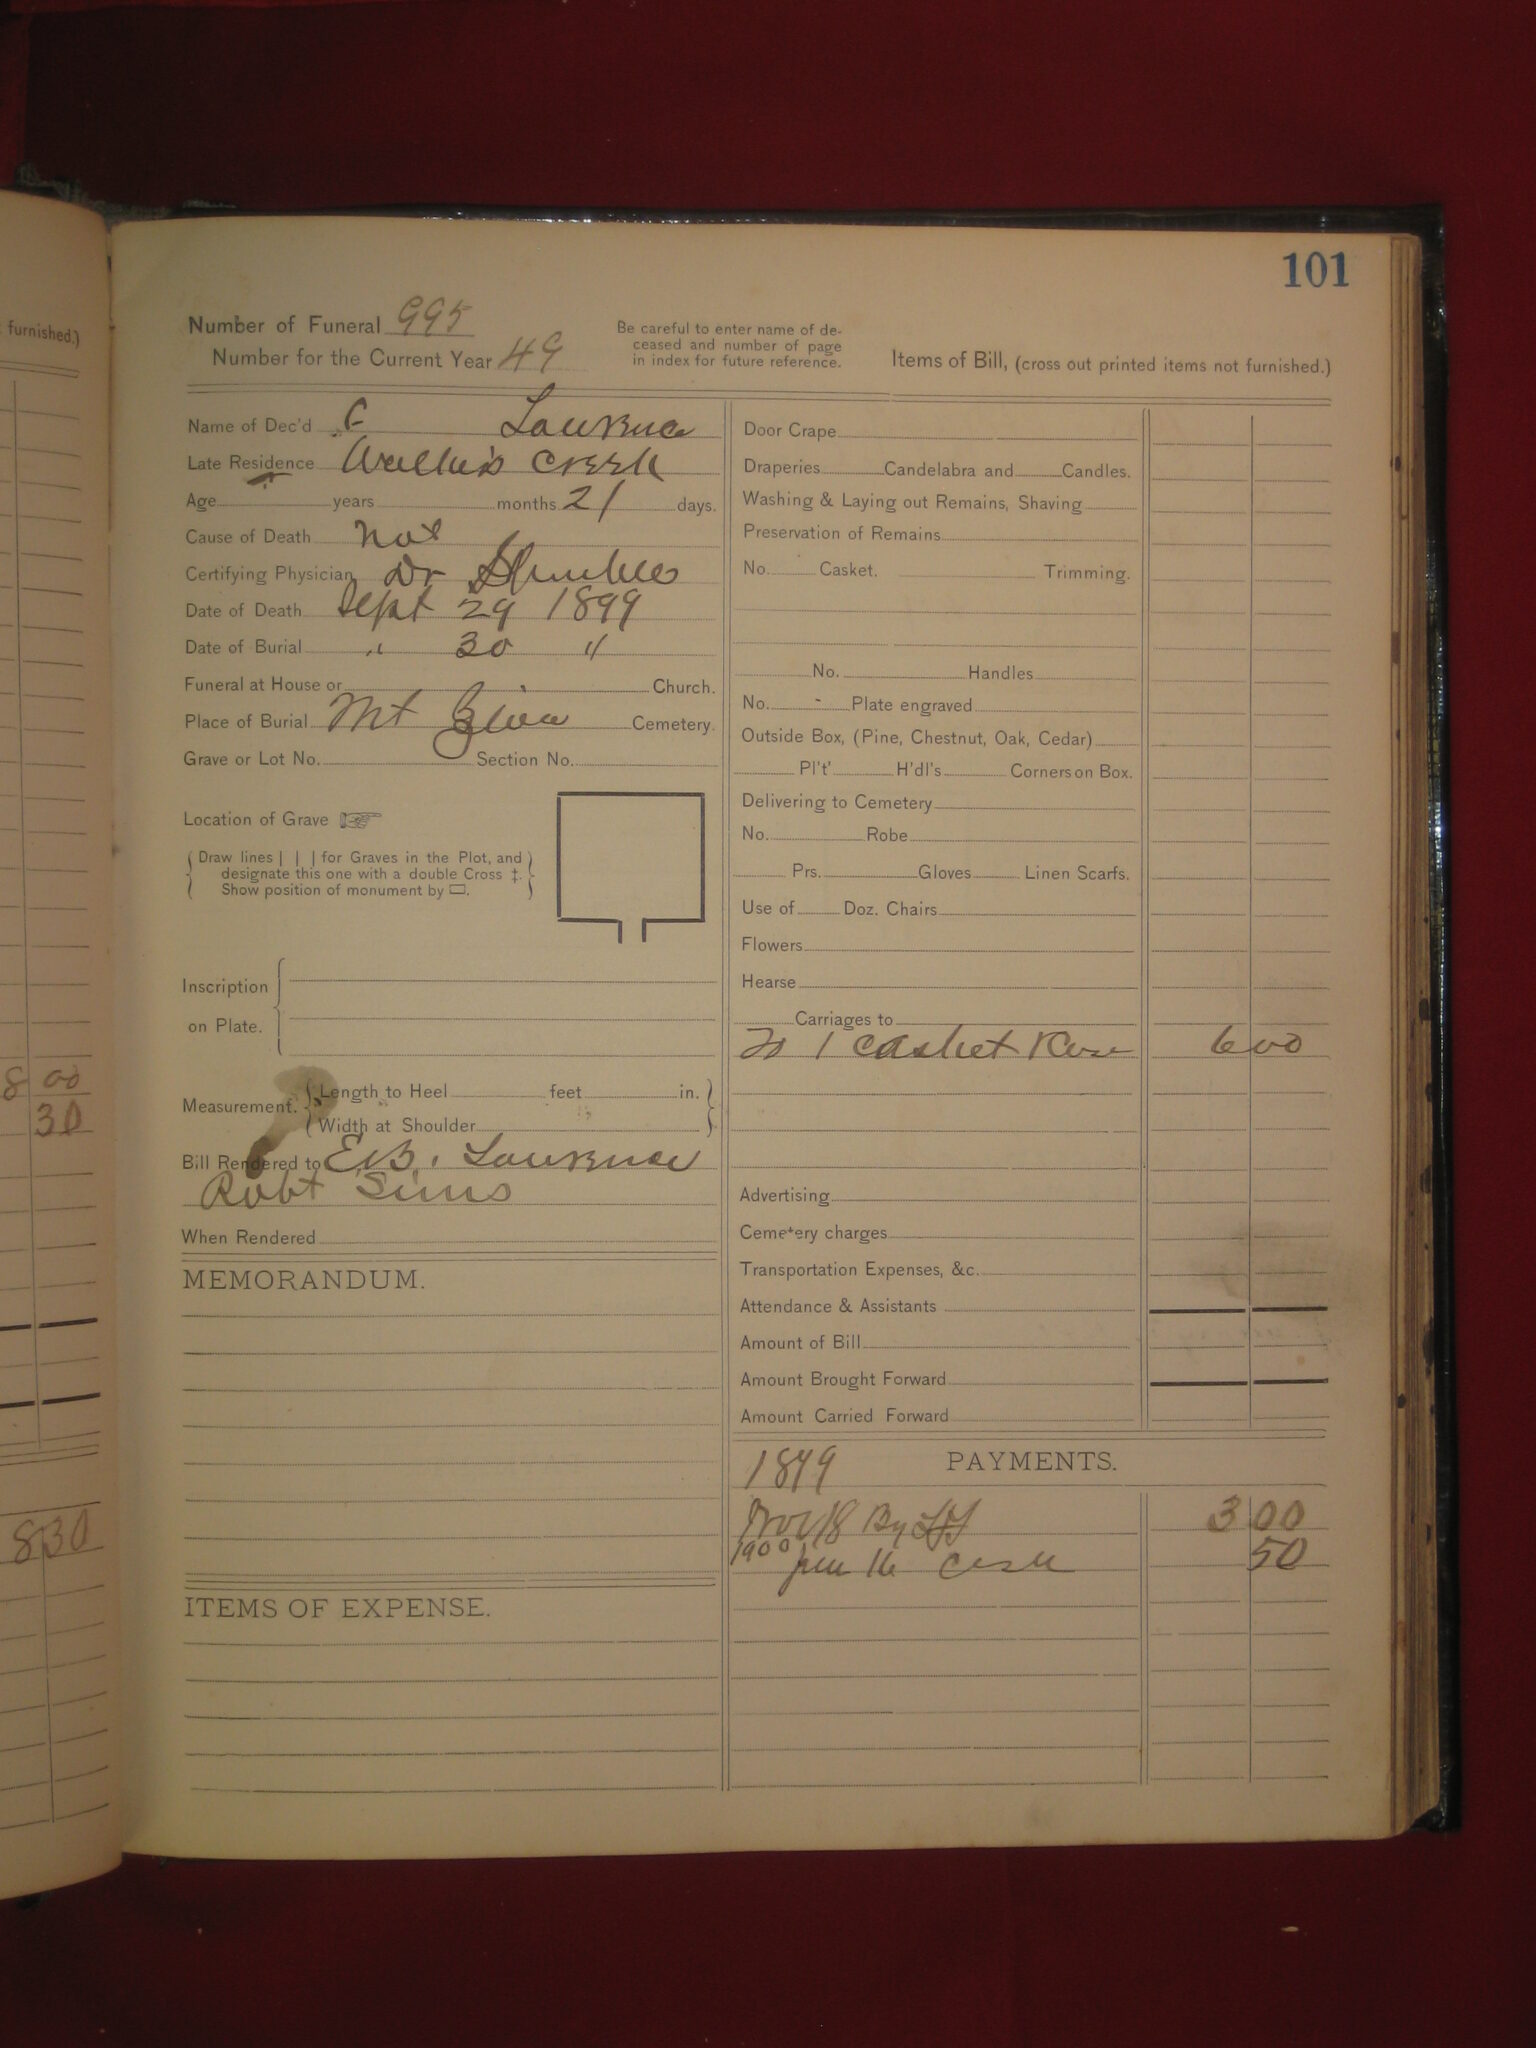 101
furnished.)
Number of Funeral 995
Number for the Current Year 49
Be careful to enter name of de-
ceased and number of page
in index for future reference.
Items of Bill, (cross out printed items not furnished.)
Name of Dec'd Lawrence
Late Residence Creek
Age years months 21 days.
Cause of Death not
Certifying Physician Dr
Date of Death Sept 29 1899
Date of Burial " 30 "
Funeral at House or Church.
Place of Burial Mt Zion Cemetery.
Grave or Lot No. Section No.
Location of Grave
Draw lines | | | for Graves in the Plot, and
designate this one with a double Cross ‡.
Show position of monument by ▭.
Inscription
on Plate.
Measurement. Length to Heel feet in.
Width at Shoulder
Bill Rendered to E.B. Lawrence
Robt Sims
When Rendered
MEMORANDUM.
ITEMS OF EXPENSE.
Door Crape
Draperies Candelabra and Candles.
Washing & Laying out Remains, Shaving
Preservation of Remains
No. Casket. Trimming.
No. Handles
No. Plate engraved
Outside Box, (Pine, Chestnut, Oak, Cedar)
Pl't' H'dl's Corners on Box.
Delivering to Cemetery
No. Robe
Prs. Gloves Linen Scarfs.
Use of Doz. Chairs
Flowers
Hearse
Carriages to
To 1 Casket 6 00
Advertising
Cemetery charges
Transportation Expenses, &c.
Attendance & Assistants
Amount of Bill
Amount Brought Forward
Amount Carried Forward
1899 PAYMENTS.
Nov 18 By 3 00
1900 Jan 16 Cash 50
8 00
30
8 30